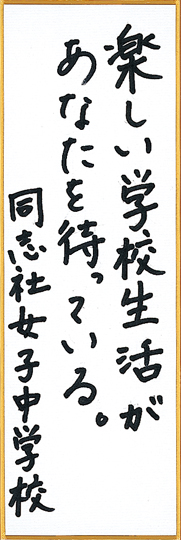 楽しい学校生活が
あなたを待っている。
同志社女子中学校